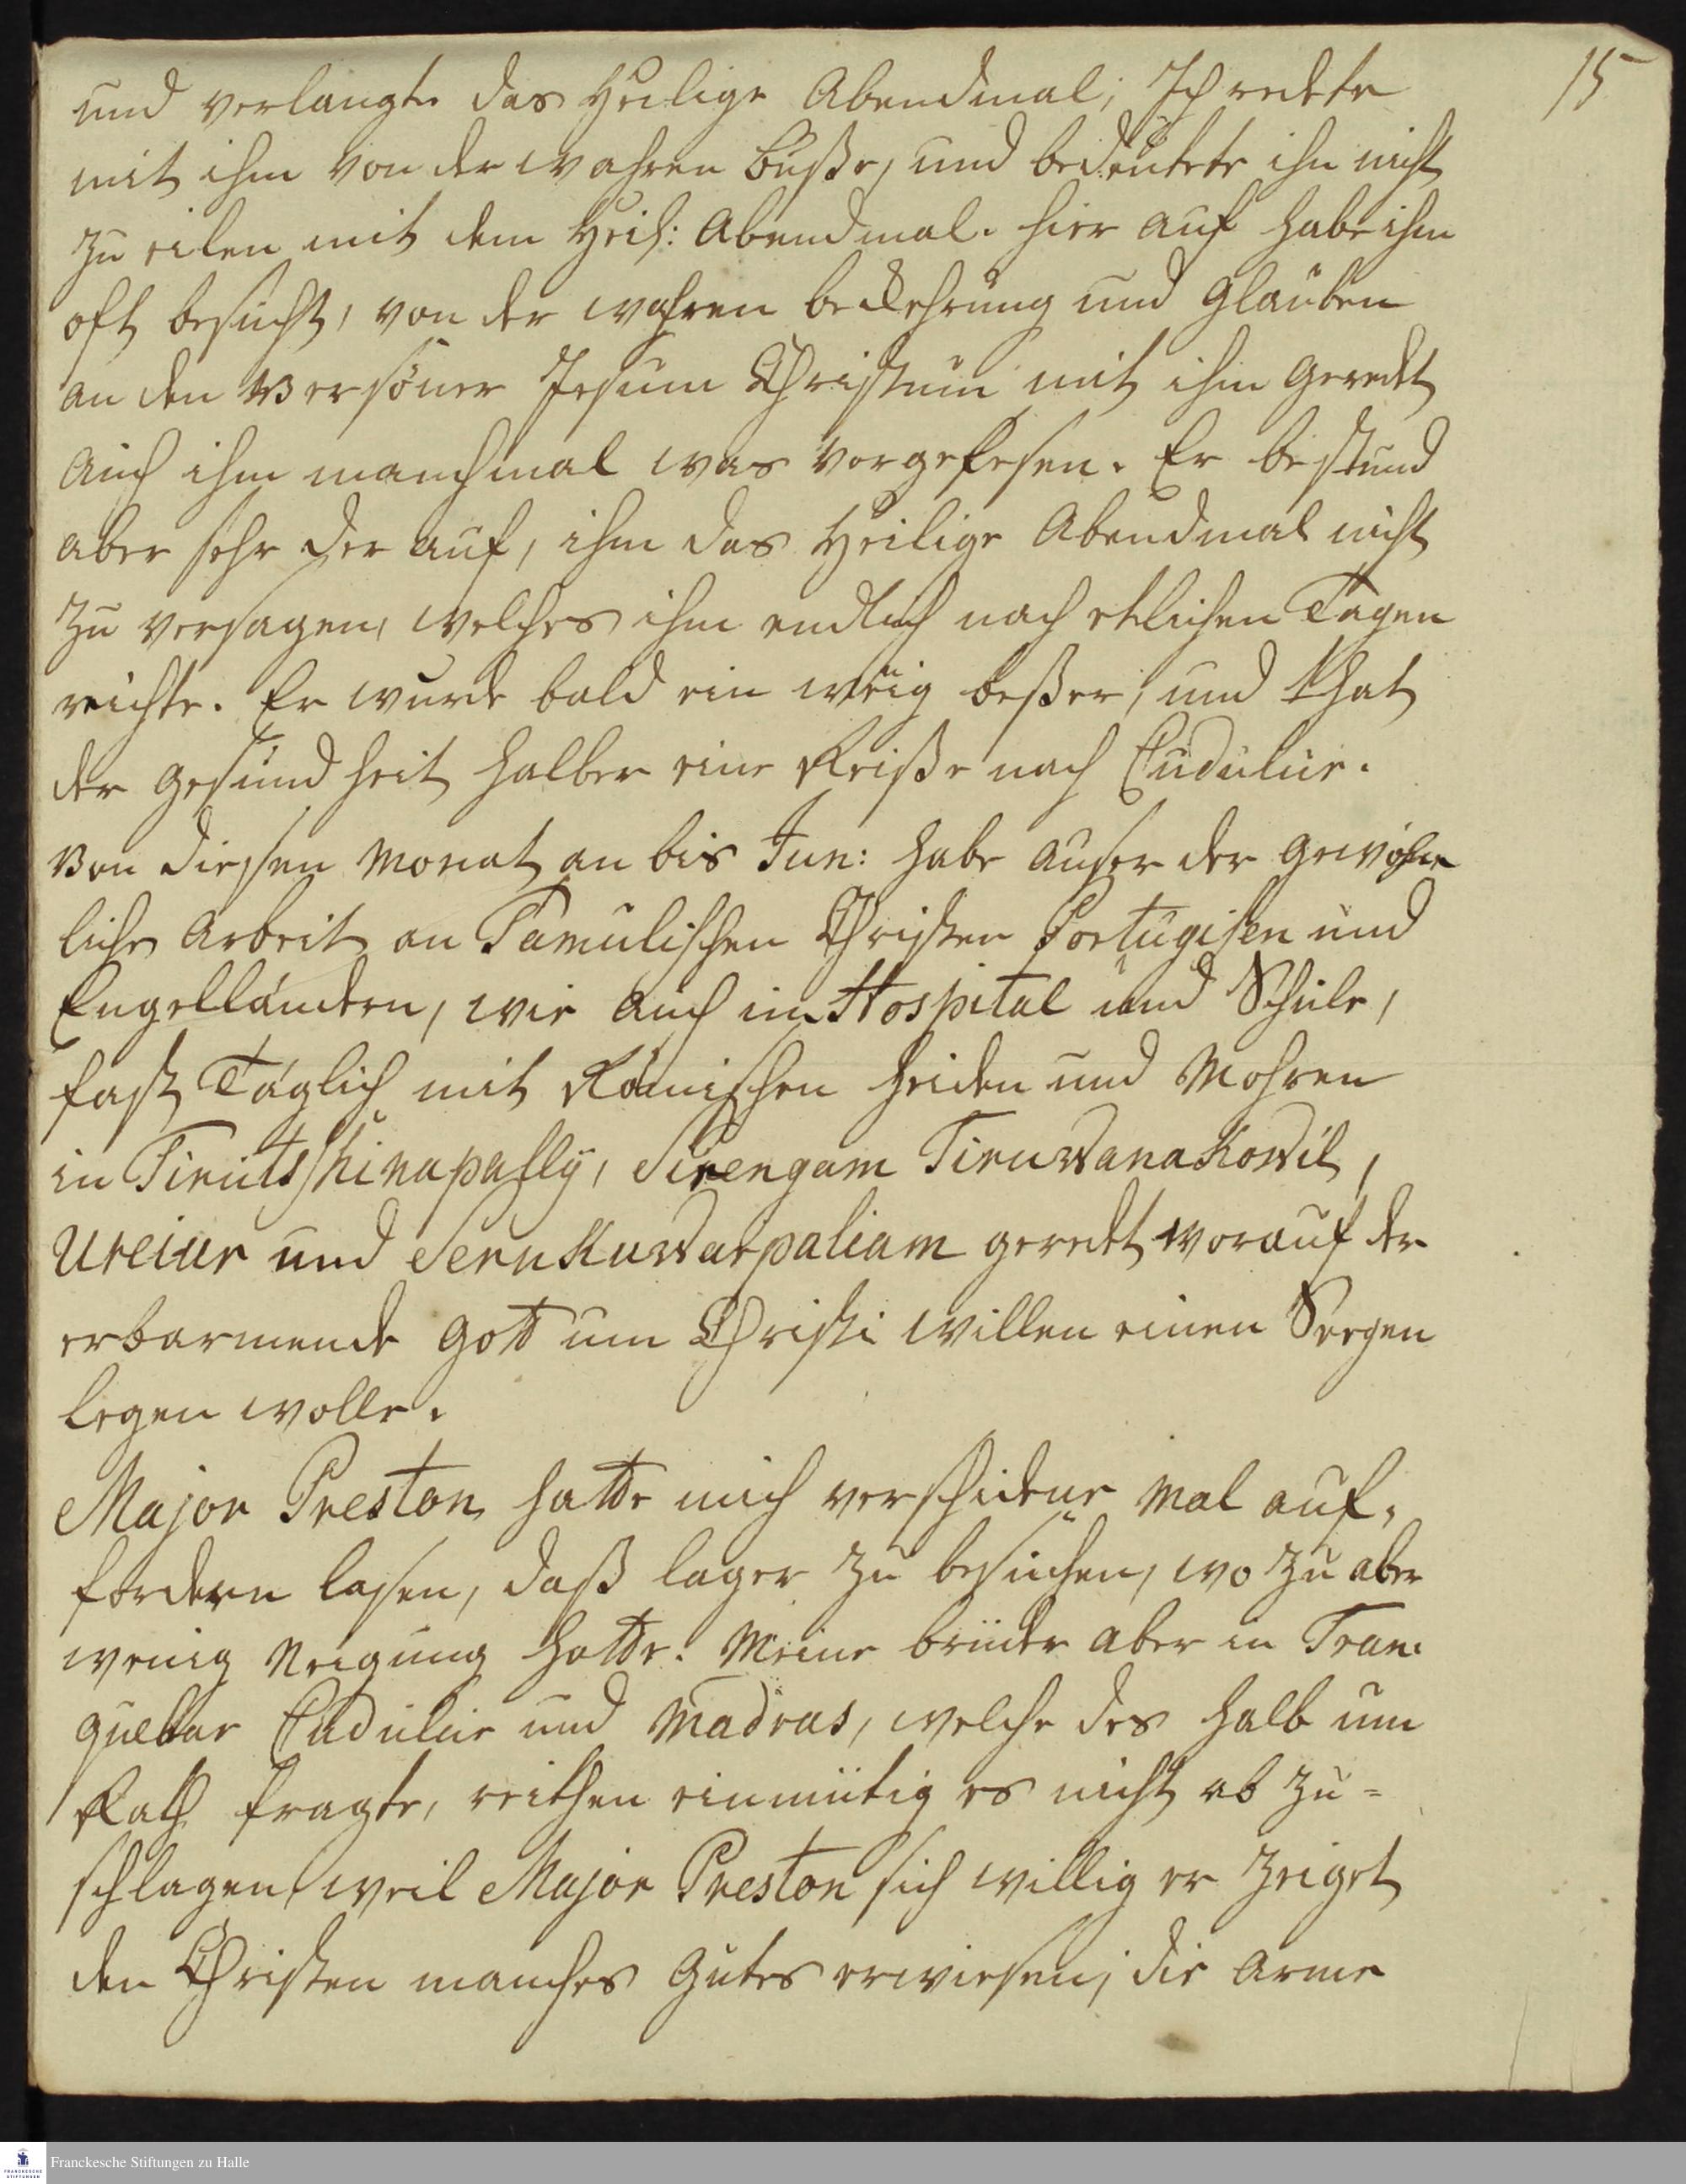 15
und verlangte das Heilige Abendmal; Ich redete
mit ihm von der wahren Buße, und bedeutete ihn nicht
zu eilen mit dem Heil: Abendmal. hier auf habe ihm
oft besucht, von der wahren bekehrung und Glauben
an den Versöner Jesum Christum mit ihm geredet
Auch ihm manchmal was vorgelesen. Er bestund
aber sehr der auf, ihm das Heilige Abendmal nicht
zu versagen, welches ihm endlich nach etlichen Tagen
reichte. Er wurde bald ein wenig beßer, und that
der gesundheit halber eine Reiße nach Cudulur.
Von diessen Monat an bis Jun: habe auser der gewöhn
liche Arbeit an Tamulischen Christen Portugisen und
Engelländern, wie auch im Hospital und Schule,
fast Täglich mit Römischen Heiden und Mohren
in Tirutshinapally, Sirengam Tiruwanakowil,
Ureiur und Serukuwarpaliam geredet worauf der
erbarmende Gott um Christi willen einen Seegen
legen wolle.
Major Preston hatte mich verschidene Mal auf,
fordern lasen, daß lager zu besuchen, wo zu aber
wenig Neigung hatte. Meine brüder aber in Tran:
quebar Cudulur und Madras, welche des halb um
Rath fragte, reithen einmütig es nicht ab zu=
schlagen, weil Major Preston sich willig er zeiget
den Christen manches Gutes erwiesen, die Arme
Franckesche Stiftungen zu Halle